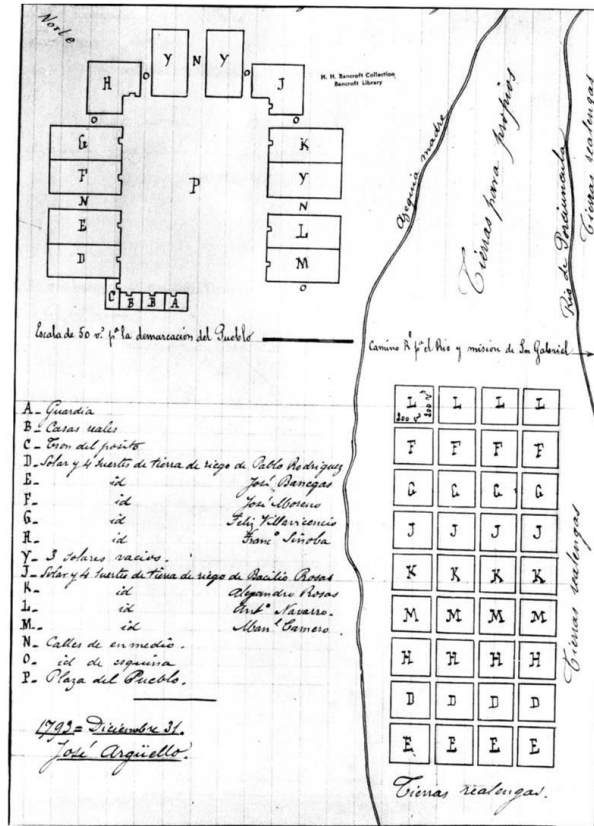 Norte
Y N Y
H O O J
H. H. Bancroft Collection
Bancroft Library
O O
G K
F P Y
N N
E L
D M
C B B A O
Azequia madre
Tierras para propios
Rio de Porciuncula
Tierras realengas
Escala de 50 v.ˢ p.ª la demarcacion del Pueblo
Camino R.ˡ p.ª el Rio y mision de Sn Gabriel
A_ Guardia
B_ Casas reales
C_ del posito
D_ Solar y 4 suertes de tierra de riego de Pablo Rodriguez
E_ id José Banegas
F_ id José Moreno
G_ id Feliz Villavicencio
H_ id Franc.º Sinoba
Y_ 3 Solares vacios.
J_ Solar y 4 suertes de tierra de riego de Bacilio Rosas
K_ id Alejandro Rosas
L_ id Ant.º Navarro.
M_ id Man.ˡ Camero.
N_ Calles de enmedio.
O_ id de esquina
P_ Plaza del Pueblo.
1793 = Diciembre 31.
José Argüello.
L L L L
200 v.ˢ 200 v.ˢ
F F F F
G G G G
J J J J
K K K K
M M M M
H H H H
D D D D
E E E E
Tierras realengas
Tierras realengas.